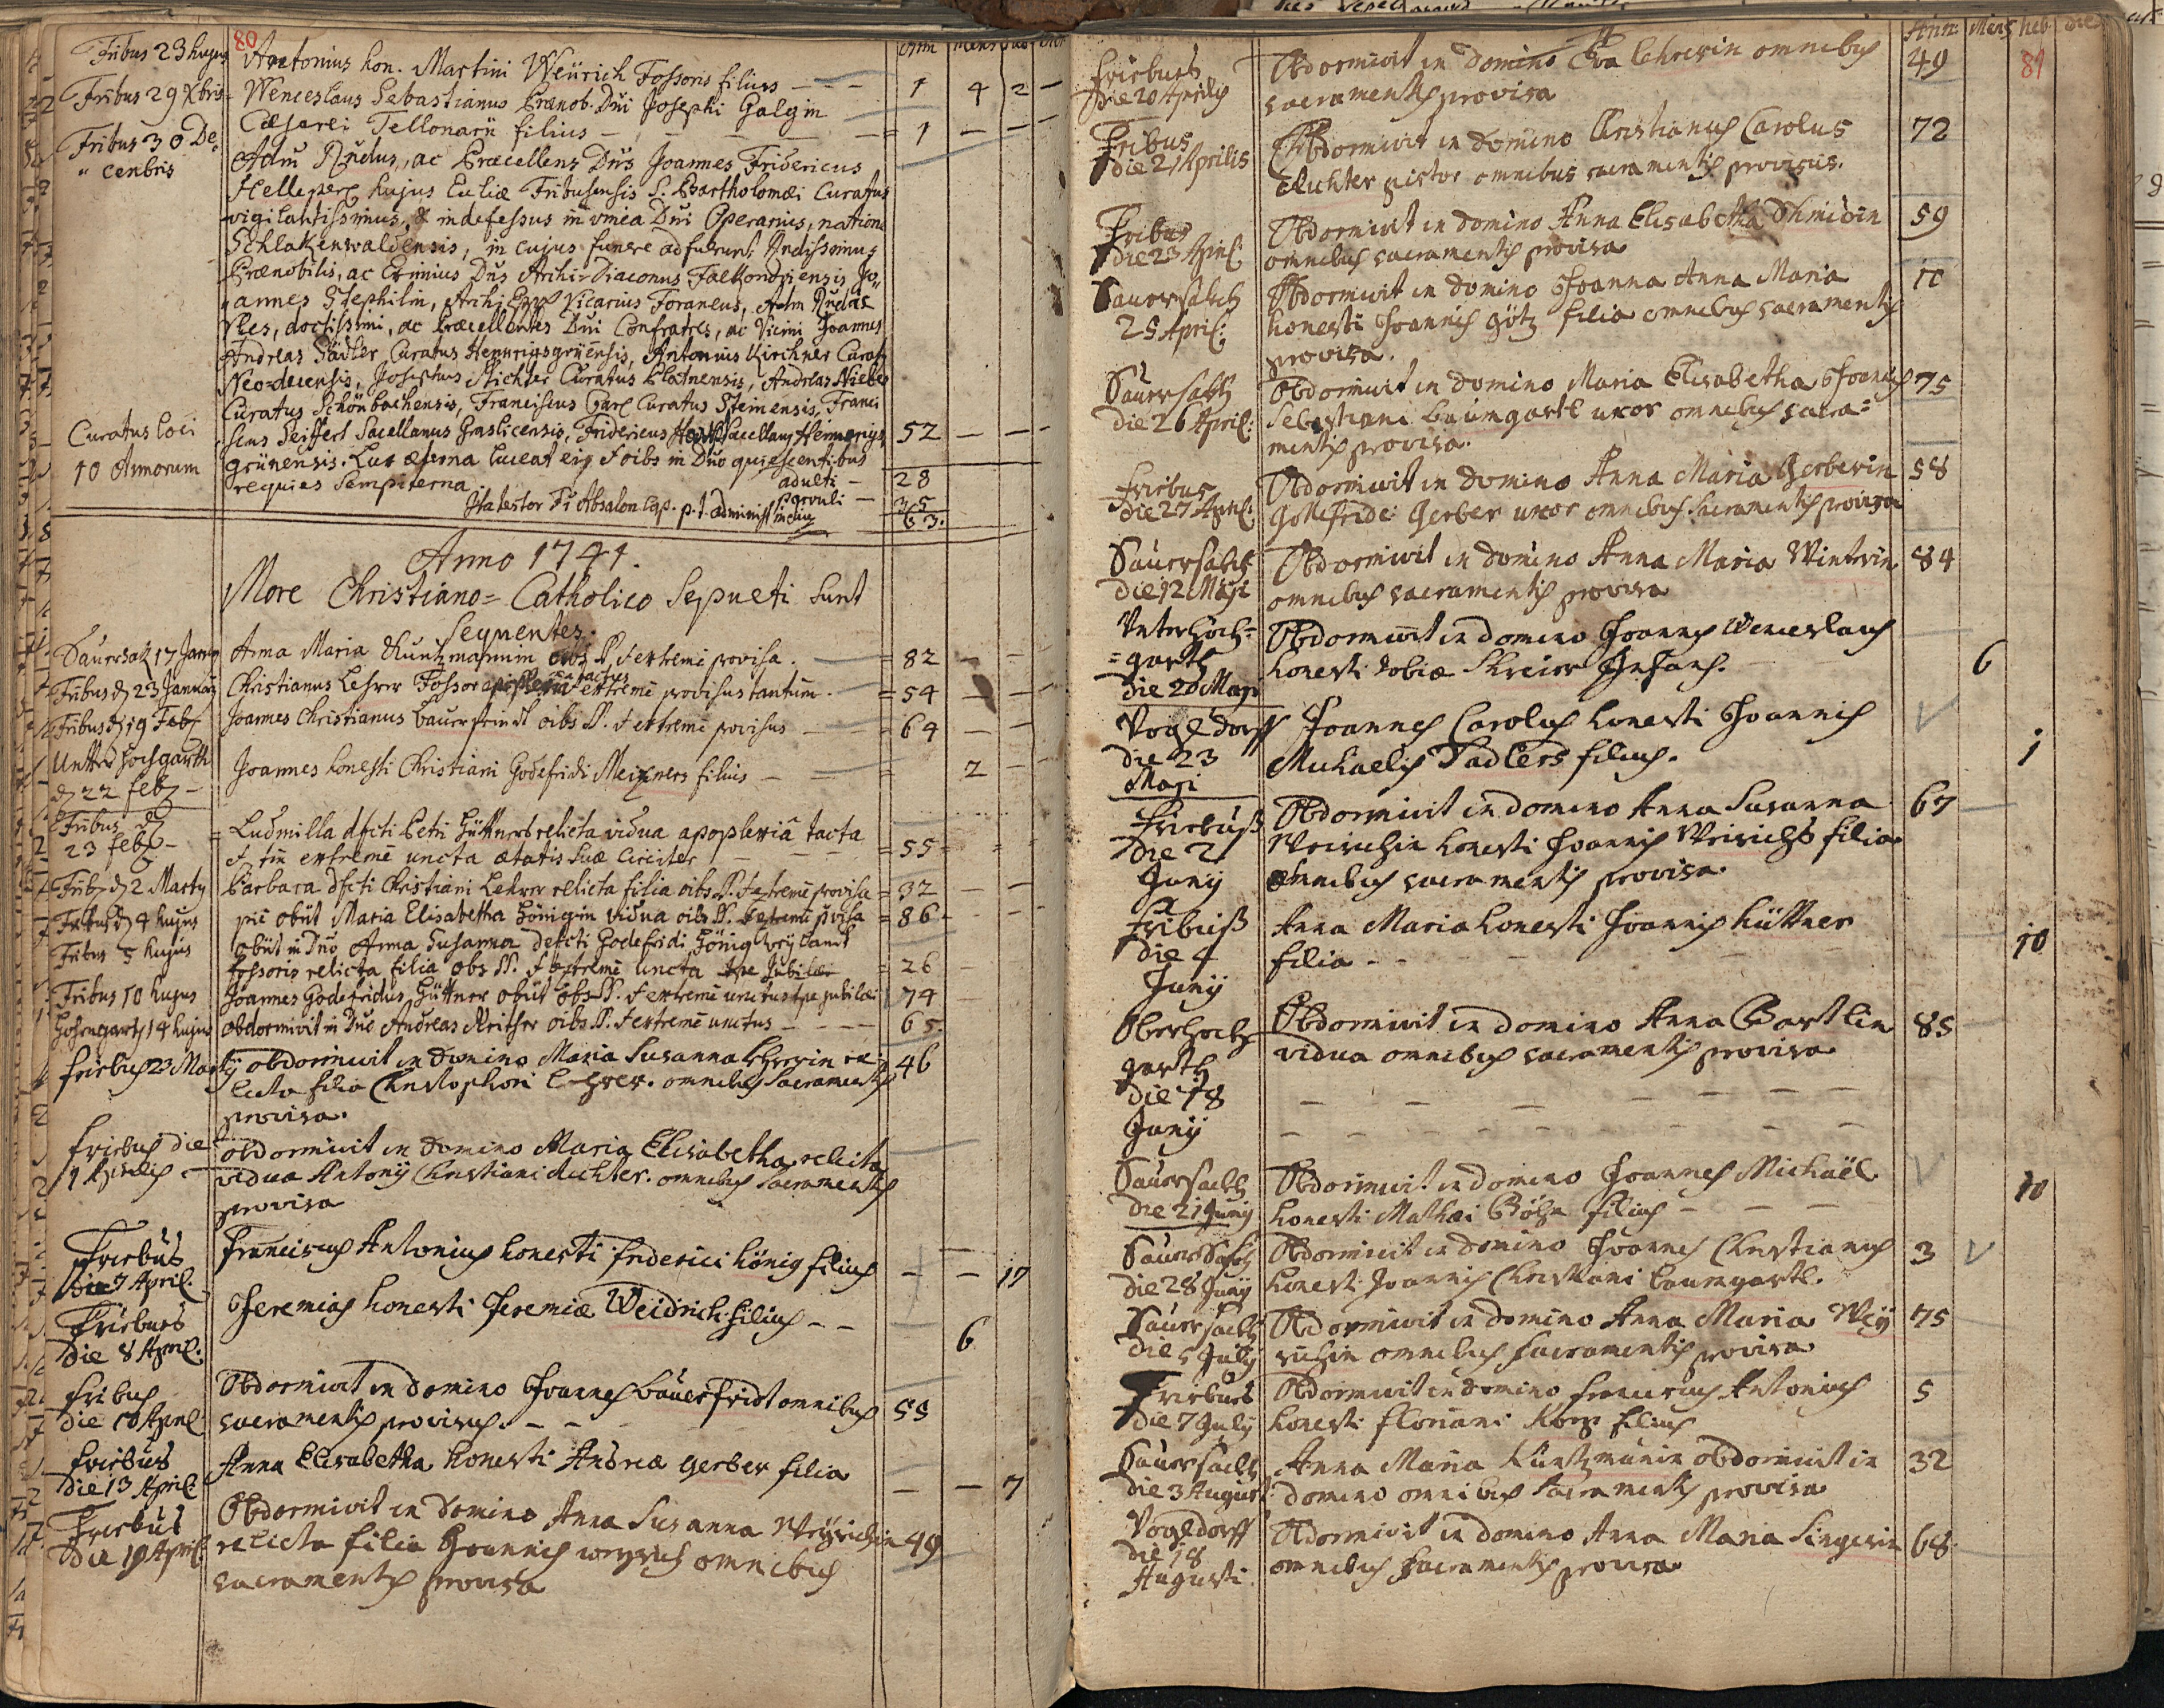 80
Ann Mens heb die
Fribus 23 hujus Antonius hon. Martini Weürich Fossoris filius 1 4 2 —
Fribus 29 Xbris Wenceslaus Sebastianus Prænob. Dni Josephi Galgin
Cæsarei Tellonarii filius — = 1 — — —
Fribus 30 De- Adm Rndus, ac Præcellens Dnus Joannes Fridericus
cembris
hujus Ecliæ Fribusensis S. Bartholomæi Curatus
vigilantissimus, & indefessus in vinea Dni Operarius, natione
Schlakenwaldensis, in cujus funere adfuerunt:
Prænobilis, ac Eximius Dnus Archi-Diaconus Falkondriensis Jo-
annes Stephilin, Vicarius Foraneus, Adm
docissimi, ac Præcellentes Dni Confratres, ac Vicini Joannes
Andreas Sädler, Curatus Hennrigsgrüensis, Antonius Kirchner Curat
Neo-decensis, Josephus Richter Curatus Platnensis, Andreas
Curatus Schönbachensis, Franciscus Curatus Steinensis, Franci
Curatus loci scus Seiffert Sacellanus Graslicensis, Fridericus Sacellanus Hennerigs 52 — — —
10 Annorum grünensis. Lux æterna luceat ei, & oibs in Dno quiescentibus
requies sempiterna. adulti — 28
Ita testor Fr Absalon Cap. p.t. administ parvuli — 35
63.
Anno 1741.
More Christiano=Catholico Sepulti sunt
Sequentes.
Saursak 17 Janu Anna Maria Kuntzmannin oibs SS. & extremè provisa. = 82 — —
Fribus d 23 Januarij Christianus Lehrer Fossor apoplexia tactus extremè provisus tantum. = 54 — —
Fribus d 19 Feb Joannes Christianus Bauerfeindt oibs SS. & extremè provisus = 64 — —
Untter Hochgarth
d 22 feb — Joannes honesti Christiani Godefridi Meixners filius — = 2 —
Fribus d
23 feb — Ludmilla dfcti Petri Hüttners relicta vidua apoplexiâ tacta
& tm extremè uncta ætatis suæ circiter — = 55
Frib d 2 Marty Barbara dfcti Christiani Lehrer relicta filia oibs SS. & extremè provisa = 32 — —
Fribus d 4 hujus piè obiit Maria Elisabetha Hönigin vidua oibs SS. extremè pvisa = 86 —
Fribus 5 hujus obiit in Dno Anna Susanna defcti Godefridi Hönig weylandt
Fossoris relicta filia obs SS. & extremè uncta tpe Jubilæi = 26 —
Fribus 10 hujus Joannes Godefridus Hüttner obiit obs SS. & extremè unctus tpe jubilæi 74
Hohengarth 14 hujus obdormivit in Dno Andreas Reither oibs SS. & extremè unctus — 65.
Friebus 23 Martij obdormivit in domino Maria Susanna Lehrerin re- 46
licta filia Christophori Lehrer. omnibus Sacramentis
provisa.
Friebus die
1 Aprilis — obdormivit in domino Maria Elisabetha relicta
vidua Antonij Christiani Richter. omnibus Sacramentis
provisa
Friebus
die 7 April. Franciscus Antonius honesti friderici König filius — — 17
Friebus
Die 8 April. Jeremias honesti Jeremiæ Weidrich filius — — 6
Fribus
die 10 April. Obdormivit in domino Joannes Bauerfridt omnibus 55
sacramentis provisus. — —
Friebus
Die 13 April. Anna Elisabetha honesti Andreæ Gerber filia — — 7
Friebus
Die 19 April. Obdormivit in domino Anna Susanna Weyrichin 49
relicta filia Joannis weyrich omnibus
sacramentis provisa
Ann Mens heb die
81
Friebus
Die 20 Aprilis Obdormivit in domino Eva Lehrerin omnibus 49
sacramentis provisa
Fribus
Die 21 Aprilis Obdormivit in domino Christianus Carolus 72
Richter pistor omnibus sacramentis provisus.
Fribus
Die 23 April: Obdormivit in domino Anna Elisabetha Schmidin 59
omnibus sacramentis provisa
Sauersabth
25 April: Obdormivit in domino Joanna Anna Maria 10
honesti Joannis Götz filia omnibus sacramentis
provisa.
Sauersabth
Die 26 April: Obdormivit in domino Maria Elisabetha Joannis 75
Sebastiani Baumgartl uxor omnibus sacra=
mentis provisa.
Friebus
Die 27 April: Obdormivit in domino Anna Maria Gerberin 58
Gottfridi Gerber uxor omnibus Sacramentis provisa
Sauersabth
Die 12 Maji Obdormivit in domino Anna Maria Winterin 84
omnibus sacramentis provisa
Unterhoch=
=garth
Die 20 Maji Obdormivit in domino Joannes Wenceslaus
honesti Tobiæ Schreier Infans. 6
Vogldorff
Die 23
Maji Joannes Carolus honesti Joannis
Michaelis Sadlers filius. 1
Friebuß
Die 2
Junij Obdormivit in domino Anna Susanna 67
Weirichin honesti Joannis Weirichs filia
omnibus sacramentis provisa.
Fribuß
Die 4
Junij Anna Maria honesti Joannis Hüttner
filia — — 10
Oberhoch
garth
Die 18
Junij Obdormivit in domino Anna Bartlin 85
vidua omnibus sacramentis provisa
Sauersacth
Die 21 Junij Obdormivit in domino Joannes Michaël 10
honesti Mathæi Böhm filius — —
Sauersach
Die 28 Junij Obdormivit in domino Joannes Christianus 3
honesti Joannis Christiani Baumgartl.
Sauersacth
Die 5 Julij Obdormivit in domino Anna Maria Wey 75
richin omnibus sacramentis provisa
Friebus
Die 7 Julij Obdormivit in domino Franciscus Antonius 5
honesti Floriani Korz filius
Sauersacth
Die 3 August Anna Maria Küntzmanin obdormivit in 32
domino omnibus Sacramentis provisa
Vogldorff
Die 18
Augusti. Obdormivit in domino Anna Maria Singerin 68
omnibus sacramentis provisa